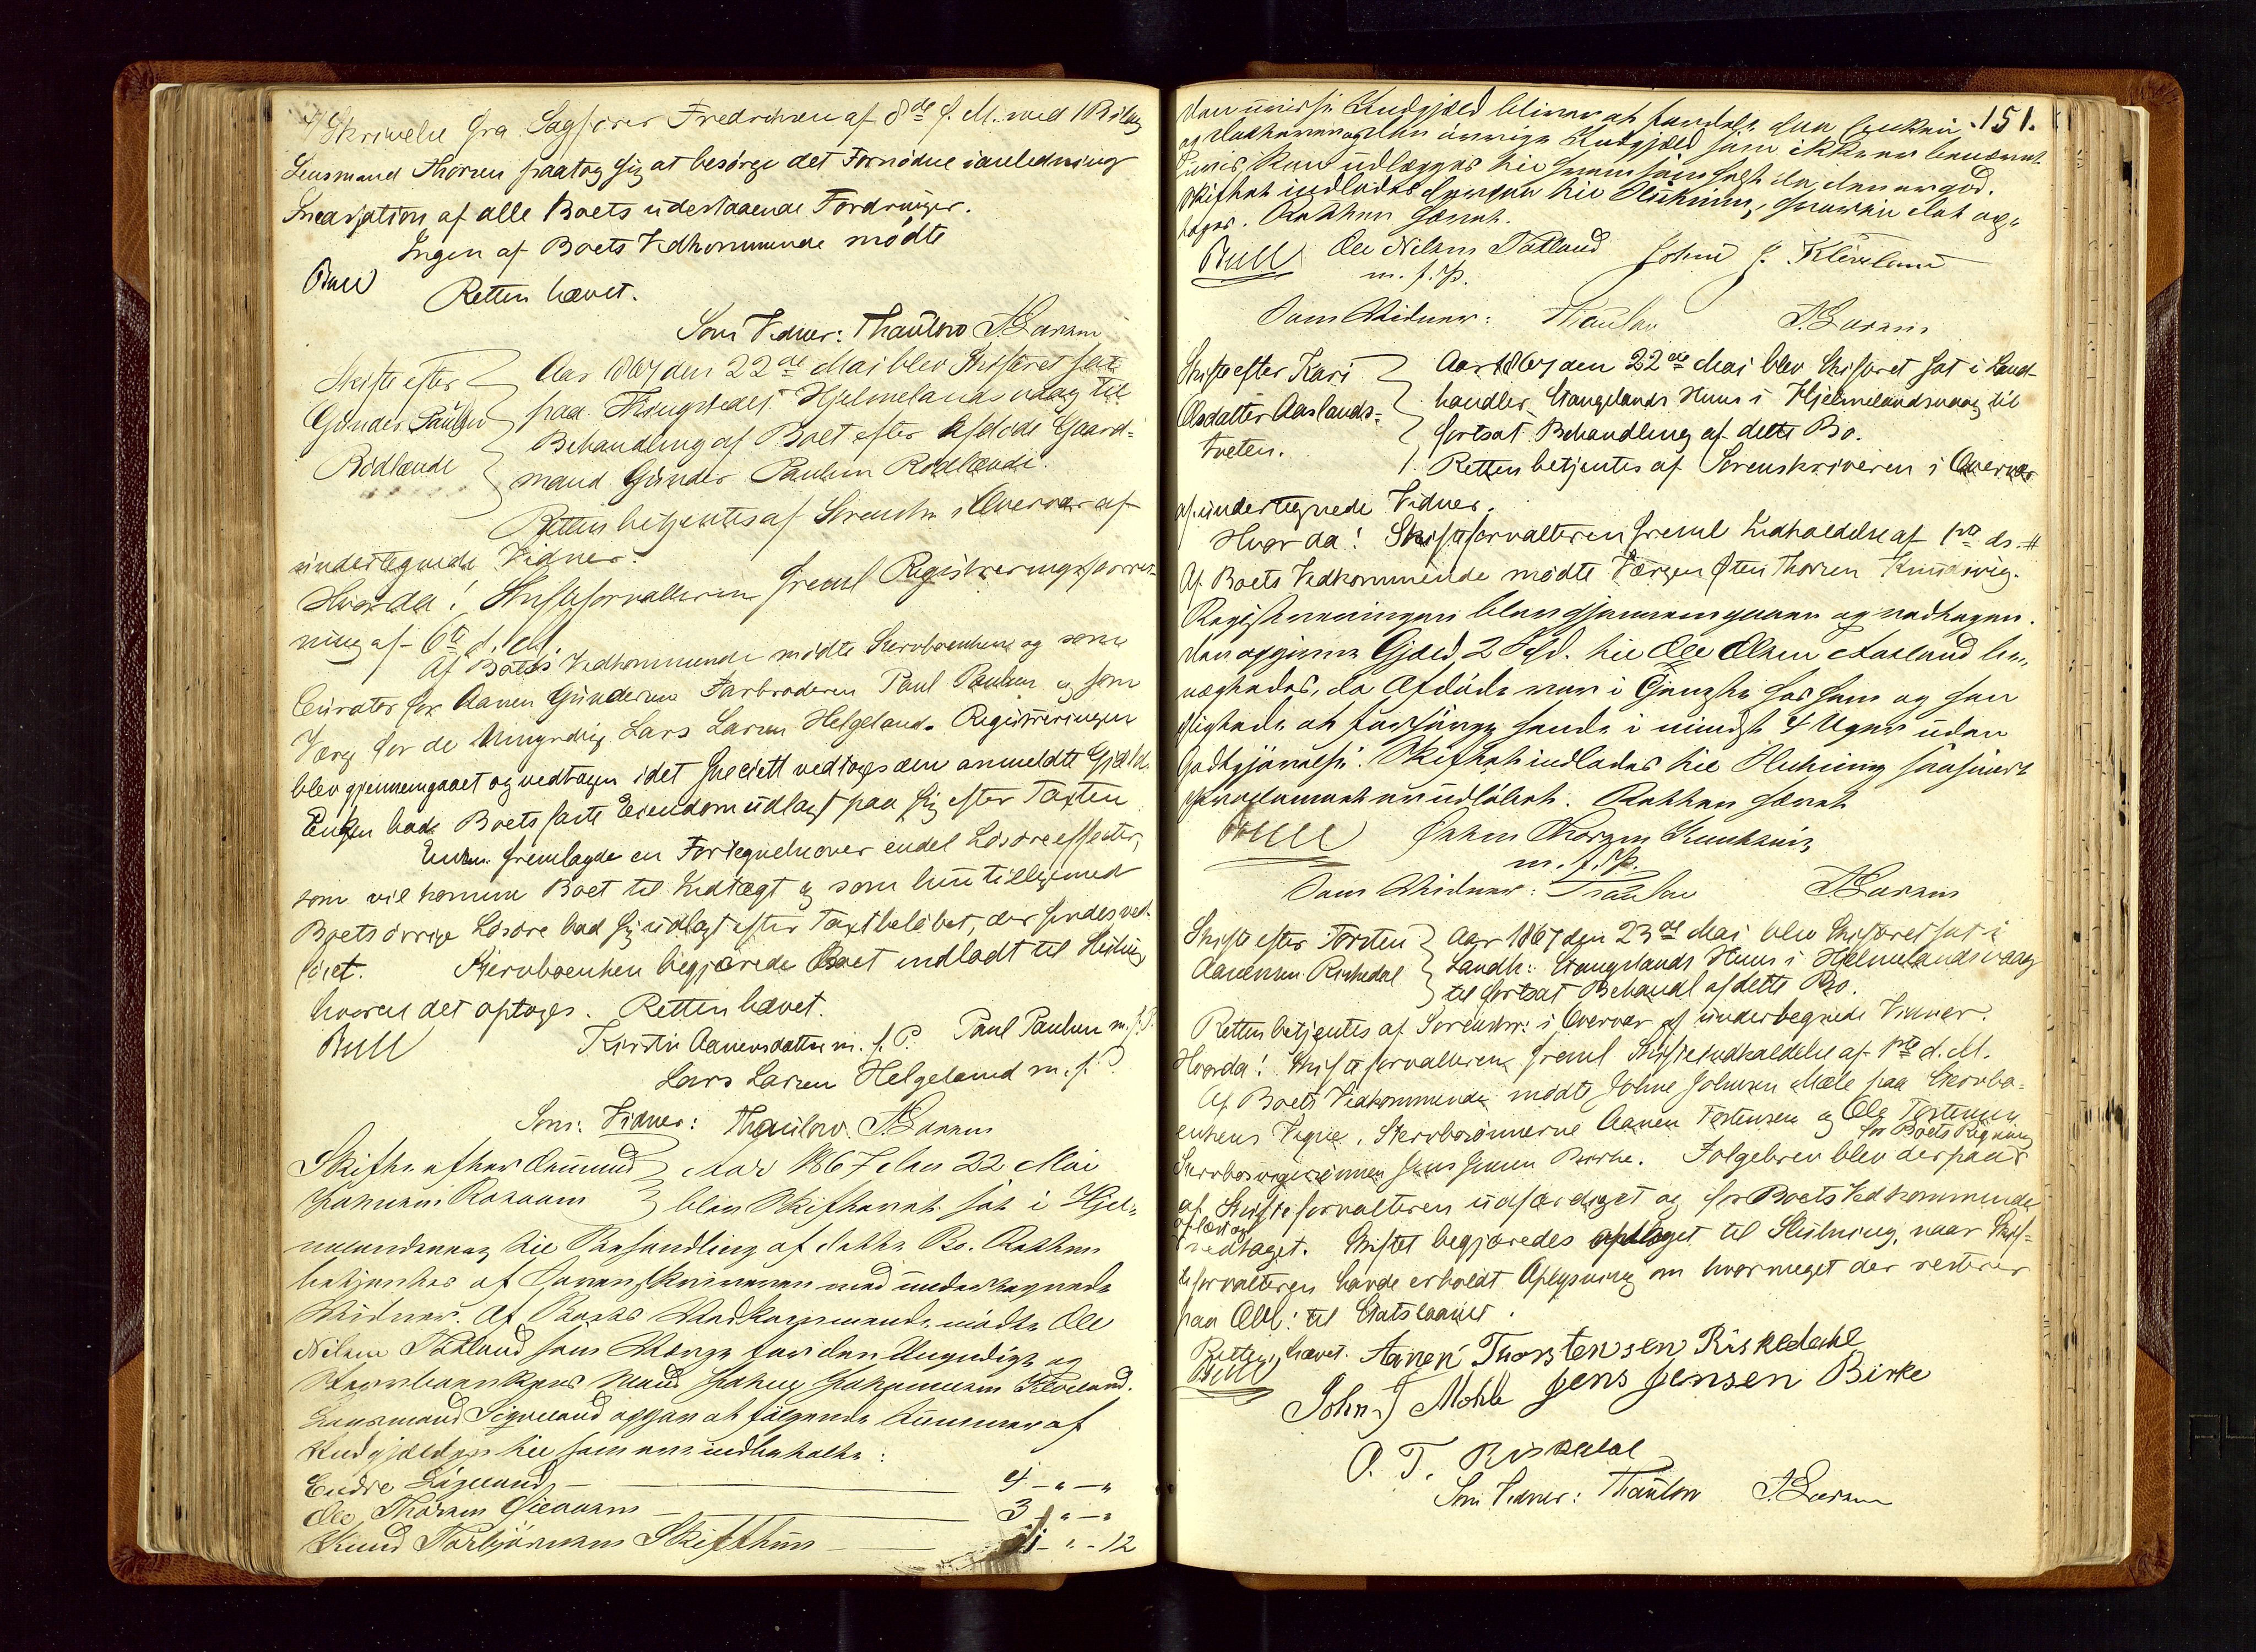 Skrivelse fra Sagfører Fredriksen af 8de d. M. med 1 Bilag
Lensmand Thorsen paatog sig at besørge det Fornødne i anledning
Incassation af alle Boets udestaaende Fordringer.
Ingen af Boets Vedkommende mødte
Retten hævet.
Bull
Som Vidner: Thaulow A Larsen
Skifte efter
Gunder Paulsen
Rødlende
Aar 1867 den 22de Mai blev Skifteret sat
paa Thingstedet Hjelmelandsvaag til
Behandling af Boet efter afdøde Gaard-
mand Gunder Paulsen Rødlende.
Retten betjentes af Sorenskr. i Overvær af
undertegnede Vidner.
Hvorda! Skifteforvalteren freml Registreringsforret-
ning af 6te d. M.
Af Boets Vedkommende mødte Stervboenken og som
Curator for Aanen Gundersen Farbroderen Paul Paulsen og som
Værg for de Umyndig Lars Larsen Helgeland. Registreringen
blev gjennemgaaet og vedtagen idet specielt vedtoges den anmeldte Gjæld.
Enken bad Boets faste Eiendom udlagt paa sig efter Taxten
Enken fremlagde en Fortegnelse over endel Løsøreeffecter,
som vil komme Boet til Indtægt og som hun tilligemed
Boets øvrige Løsøre bad sig udlagt efter Taxtbeløbet, der fandes ved-
føiet. Stervboenken begjærede Boet indladt til Slutning
hvortil det optoges. Retten hævet.
Bull
Kirstie Aanensdatter m. f. P. Paul Paulsen m. f. P.
Lars Larsen Helgeland m. f. P.
Som Vidner: Thaulow. A Larsen
Skifte efter Omund
Rosaaen
Aar 1867 den 22 Mai
blev Skifteret sat i Hjel-
melandsvaag til Behandling af dette Bo. Retten
betjentes af Sorenskriveren med undertegnede
Vidner. Af Boets Vedkommende mødte Ole
Nilsen Tøtland som Værge for den Umyndige og
Stervboenkens Mand Johne Johannesen Kleveland.
Lensmand Sigveland opgav at følgende Summer af
Udgjælden til ham var indbetalte:
Endre Ligeland 4 - " - "
Ole Thorsen 3 - " - "
Knud Torbjørnsen Skiftun 1 - " - 12
151.
Den uvisse Gjæld bliver at fordele paa Enken
og den øvrige Gjæld som ikke er benævnt
uvis, kan udlægges til ham som sagt da den er god.
Skiftet indlades derpaa til Slutning, hvortil det op-
toges. Retten hævet.
Bull Ole Nilsen Tøtland John J. Kleveland
m. f. P.
Som Vidner: Thaulow A. Larsen
Skifte efter Kari
Olsdatter Aaslands-
tveten.
Aar 1867 den 22de Mai blev Skifteret sat i Land-
handler Stangelands Huus i Hjelmelandsvaag til
fortsat Behandling af dette Bo.
Retten betjentes af Sorenskriveren i Overvær
af undertegnede Vidner.
Hvor da! Skifteforvalteren freml Indkaldelse af 1ste ds.
Af Boets Vedkommende mødte Værgen Østen Thorsen Knudsvig.
Registreringen blev gjennemgaaen og vedtagen.
Den opgivne Gjæld 2 Spd. til Ole Olsen Aasland be-
nægtedes, da Afdøde var i Tjeneste hos ham og han
pligtede at forsørge hende i mindst 4 Uger uden
Godtgjørelse. Skiftet indlades til Slutning saasnart
Proclamaet er udløbet. Retten hævet
Bull Østen Thorsen Knutsvig
m. f. P.
Som Vidner: Thaulow A Larsen
Skifte efter Torsten
Aanensen Riskedal
Aar 1867 den 23de Mai blev Skifteret sat i
Landh: Stangelands Huus i Hjelmelandsvaag
til fortsat Behandl af dette Bo.
Retten betjentes af Sorenskr: i Overvær af undertegnede Vidner.
Hvorda! Skifteforvalteren freml Skifteindkaldelse af 1ste d. M.
Af Boets Vedkommende mødte Johne Johnsen Mæle paa Stervbo-
enkens Vegne, Stervbosønnerne Aanen Torstensen og Ole Torstensen
Stervbosvigersønnen Jens Jensen Birke. Følgebrev blev derpaa for Boets Regning
af Skifteforvalteren udfærdiget og for Boets Vedkommende
oplæst og
vedtaget. Skiftet begjæredes optaget til Slutning, naar Skif-
teforvalteren havde erholdt Oplysning om hvormeget der resterer
paa Obl: til Statslaanet.
Retten hævet. Aanen Thorstensen Riskedahl
Bull
John J Mæhle Jens Jensen Birke
O. T. Riskedal
Som Vidner: Thaulow A. Larsen